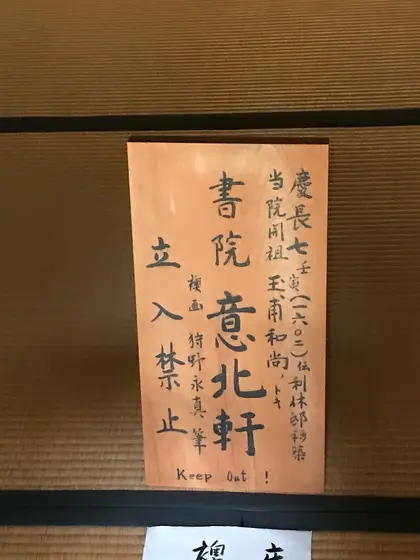 慶長七壬寅(一六〇二)伝利休邸移築
当院開祖 玉甫和尚、トキ
書院 意北軒
襖画 狩野永真筆
立入禁止
Keep Out !